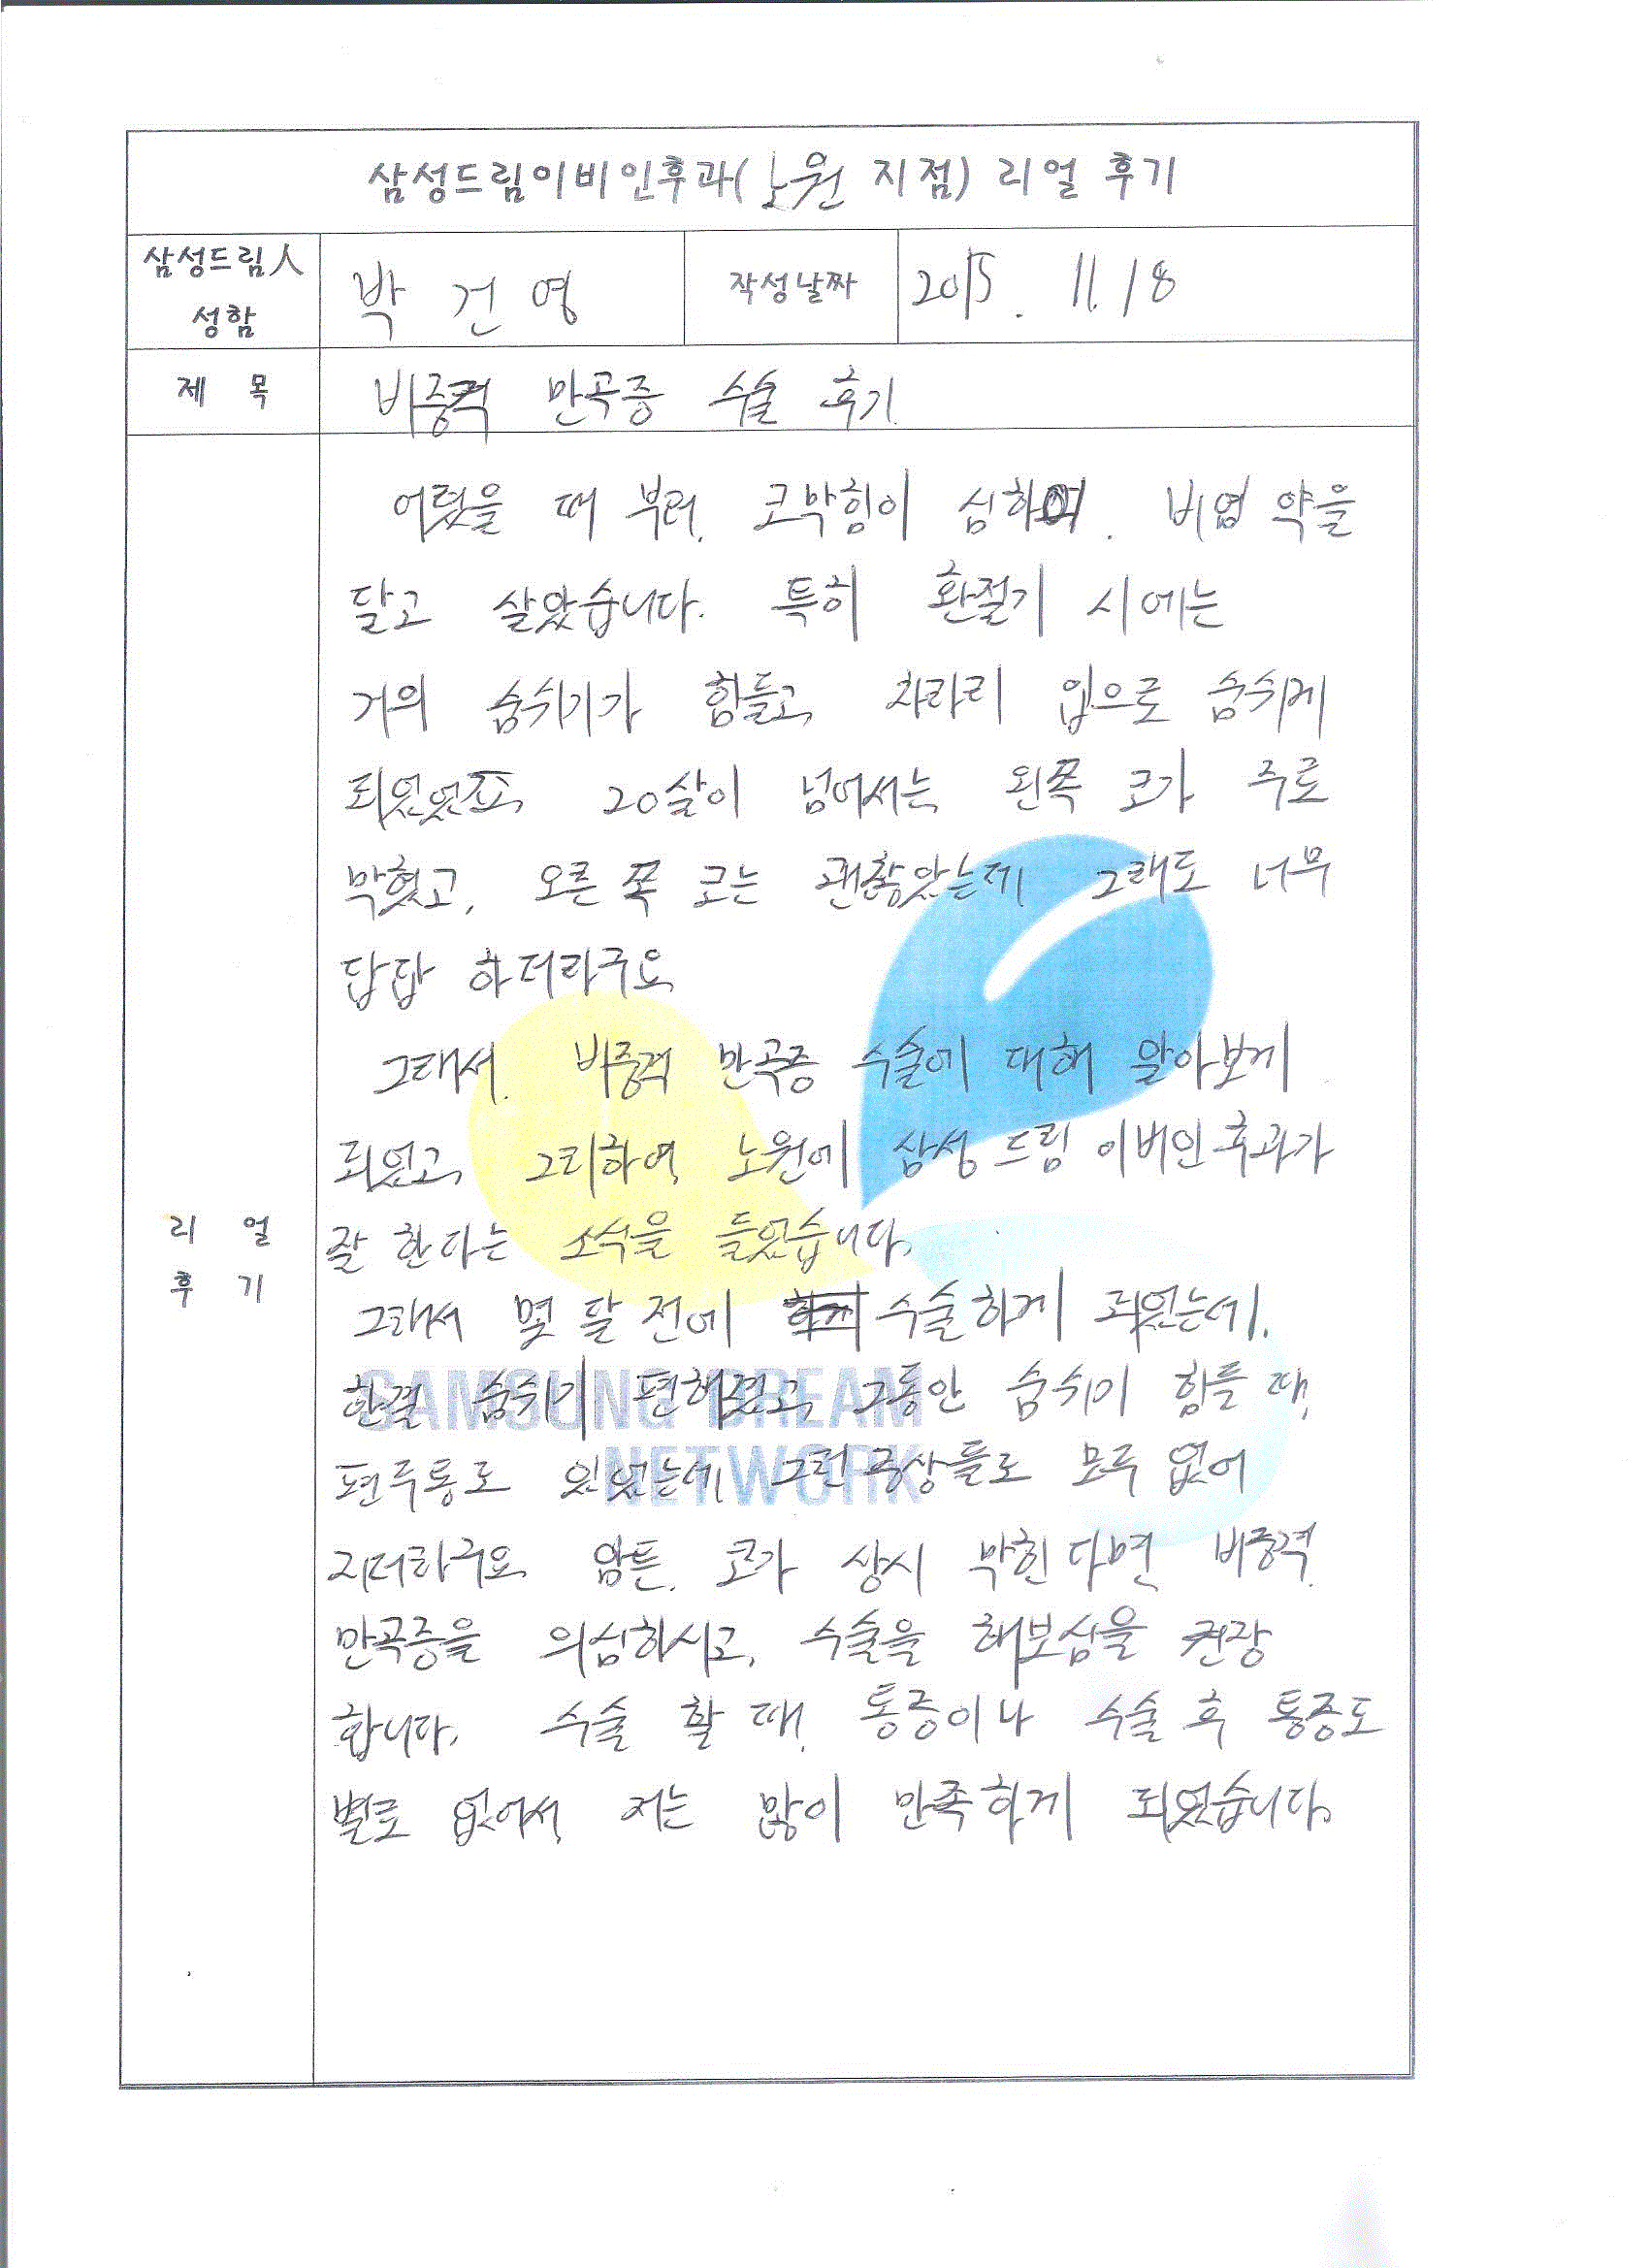 삼성드림이비인후과(노원 지점) 리얼 후기
삼성드림人
성함
박건영
작성날짜
2015. 11. 18
제 목
비중격 만곡증 수술 후기
어렸을 때 부터, 코막힘이 심하여, 비염 약을
달고 살았습니다. 특히 환절기 시에는
거의 숨쉬기가 힘들고, 차라리 입으로 숨쉬게
되었었죠. 20살이 넘어서는 왼쪽 코가 주로
막혔고, 오른쪽 코는 괜찮았는데 그래도 너무
답답 하더라구요
그래서. 비중격 만곡증 수술에 대해 알아보게
되었고, 그리하여, 노원에 삼성 드림 이비인후과가
잘 한다는 소식을 들었습니다.
그래서 몇 달 전에 수술하게 되었는데,
한결 숨쉬기 편해졌고, 그동안 숨쉬기 힘들 때,
편두통도 있었는데 그런 증상들도 모두 없어
지더라구요 암튼, 코가 상시 막힌다면, 비중격
만곡증을 의심하시고, 수술을 해보심을 권장
합니다. 수술 할 때, 통증이나 수술 후 통증도
별로 없어서, 저는 많이 만족하게 되었습니다.
리 얼
후 기
SAMSUNG DREAM
NETWORK